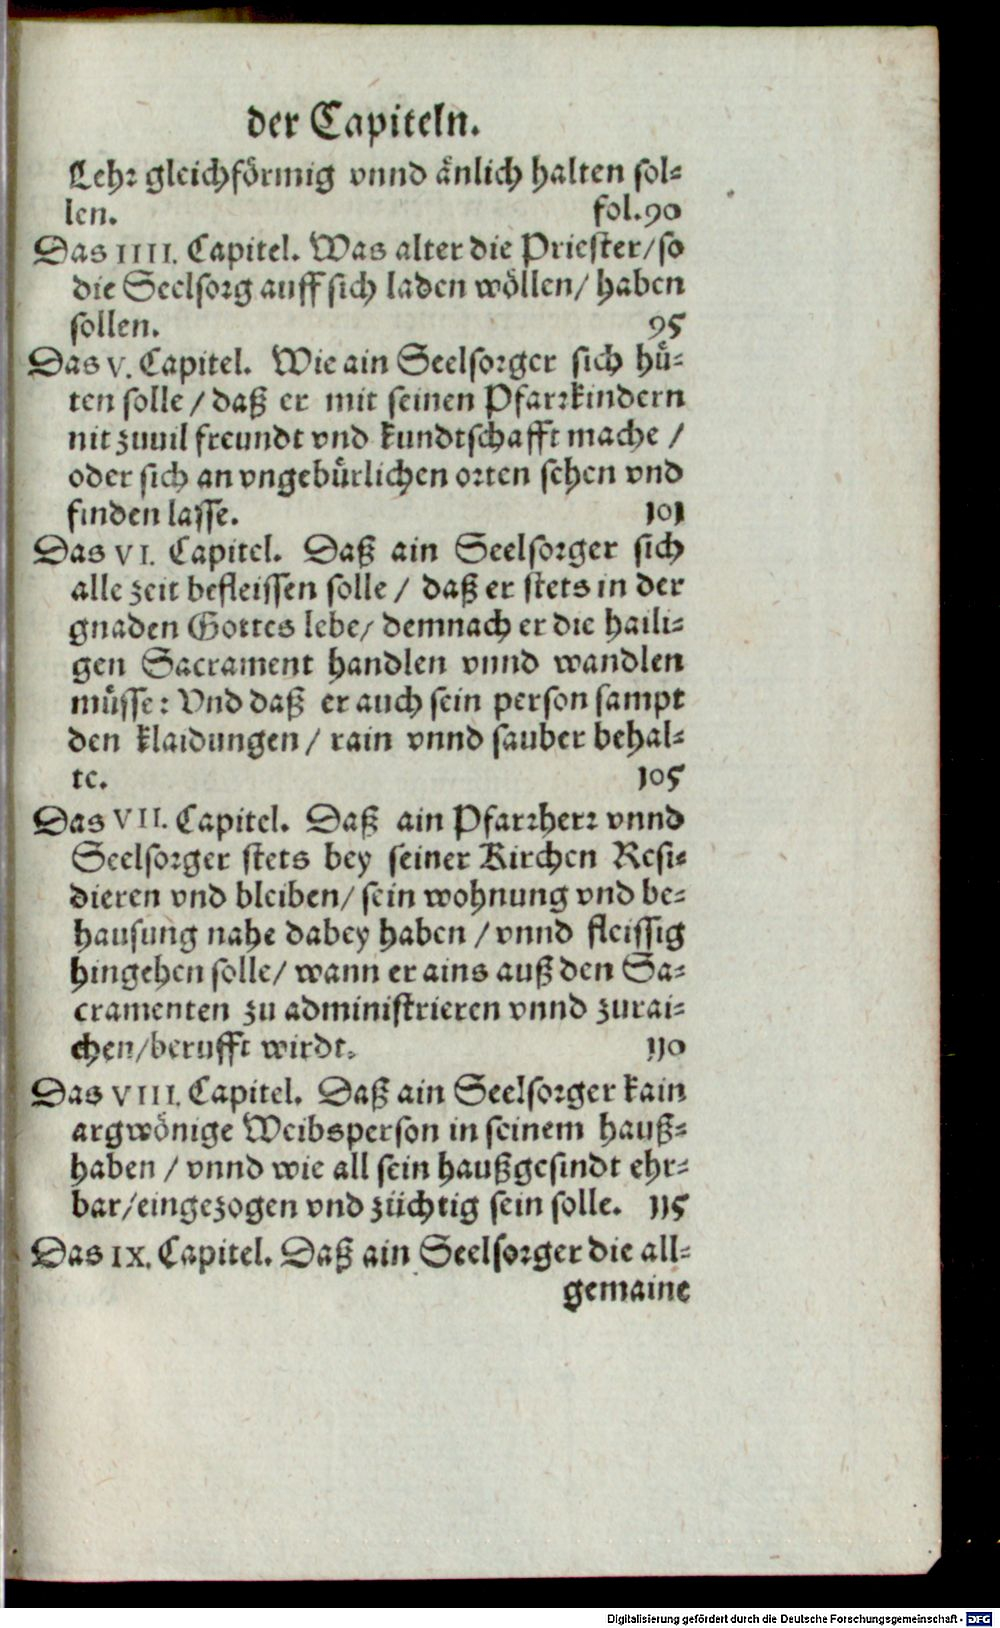 der Capiteln.
Lehr gleichförmig vnnd änlich halten sol-
len. fol.90
Das IIII. Capitel. Was alter die Priester/so
die Seelsorg auff sich laden wöllen/ haben
sollen. 95
Das V. Capitel. Wie ain Seelsorger sich hü-
ten solle / daß er mit seinen Pfarrkindern
nit zuuil freundt vnd kundtschafft mache /
oder sich an vngebürlichen orten sehen vnd
finden lasse. 101
Das VI. Capitel. Daß ain Seelsorger sich
alle zeit befleissen solle / daß er stets in der
gnaden Gottes lebe/ demnach er die haili-
gen Sacrament handlen vnnd wandlen
müsse: Vnd daß er auch sein person sampt
den klaidungen / rain vnnd sauber behal-
te. 105
Das VII. Capitel. Daß ain Pfarrherr vnnd
Seelsorger stets bey seiner Kirchen Resi-
dieren vnd bleiben/ sein wohnung vnd be-
hausung nahe dabey haben / vnnd fleissig
hingehen solle/ wann er ains auß den Sa-
cramenten zu administrieren vnnd zurai-
chen/berufft wirdt. 110
Das VIII. Capitel. Daß ain Seelsorger kain
argwönige Weibsperson in seinem hauß-
haben / vnnd wie all sein haußgesindt ehr-
bar/eingezogen vnd züchtig sein solle. 115
Das IX. Capitel. Daß ain Seelsorger die all-
gemaine
Digitalisierung gefördert durch die Deutsche Forschungsgemeinschaft - DFG